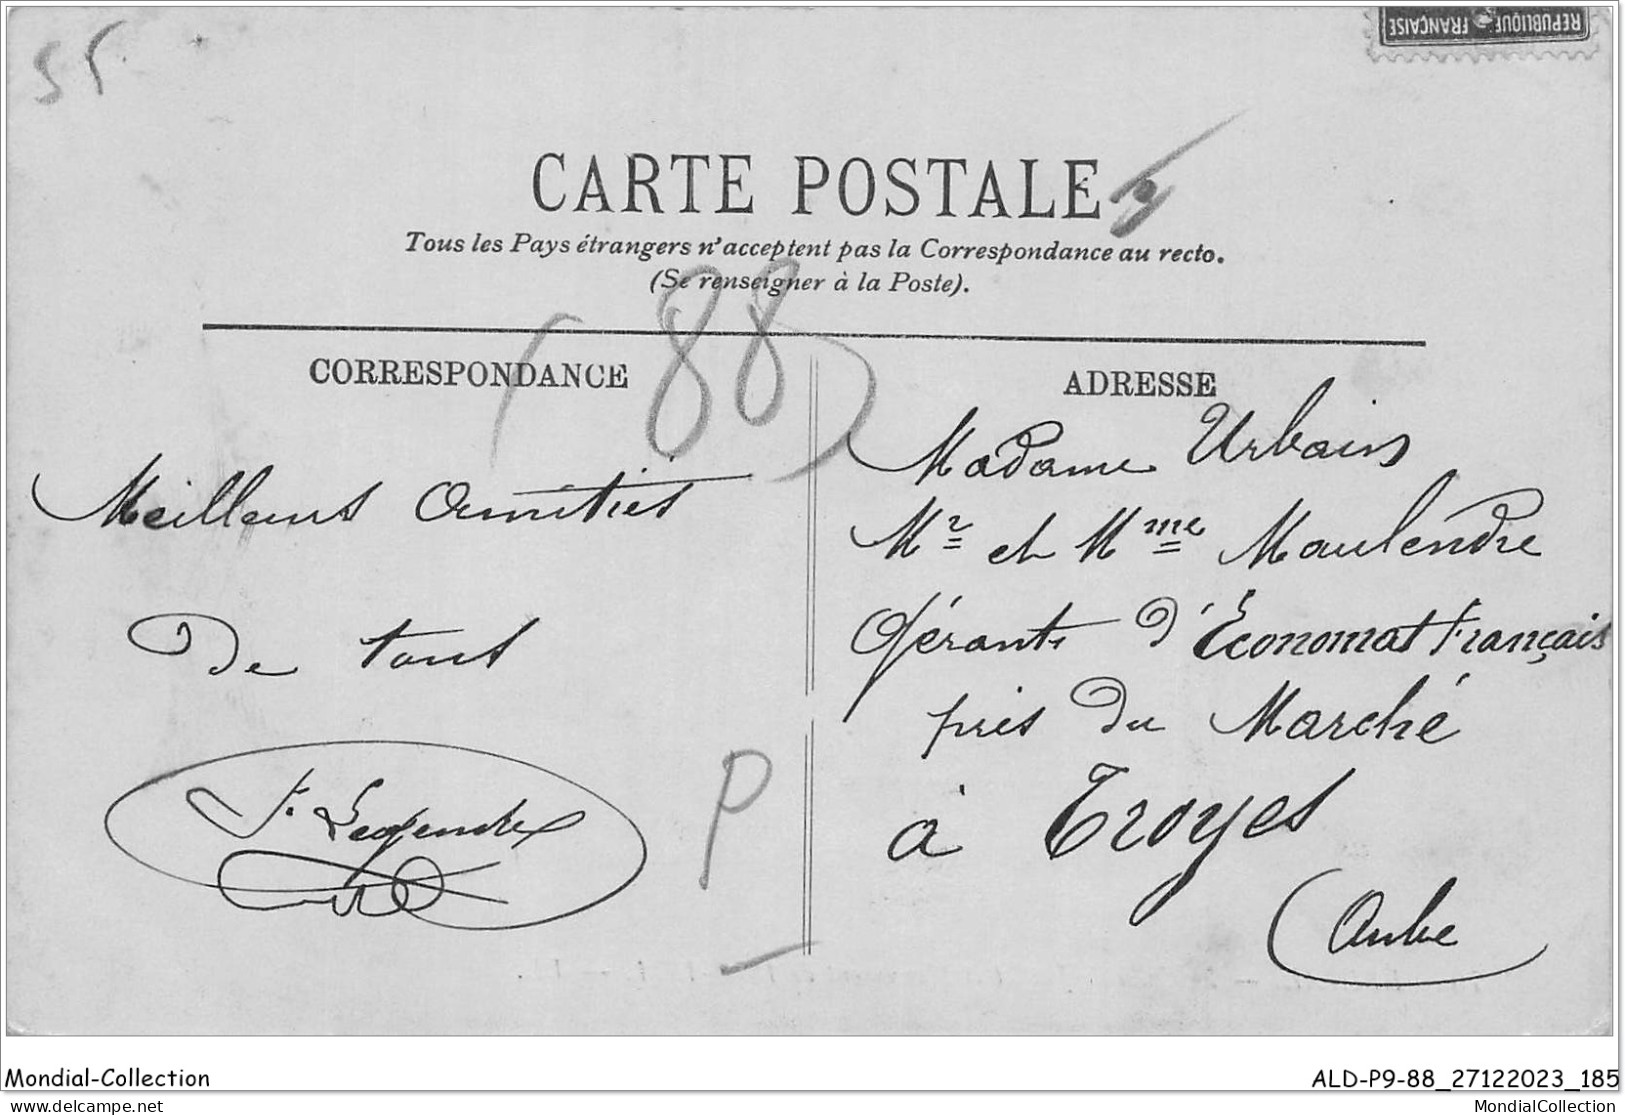 55
REPUBLIQUE FRANÇAISE
CARTE POSTALE
Tous les Pays étrangers n'acceptent pas la Correspondance au recto.
(Se renseigner à la Poste).
88
CORRESPONDANCE
Meilleurs Amitiés
De tous
J. Legendre
P
ADRESSE
Madame Urbain
Mr et Mme Maulendre
Gérants d'Économat Français
près du Marché
à Troyes
(Aube
Mondial-Collection
ALD-P9-88_27122023_185
Mondial-Collection.com
MondialCollection